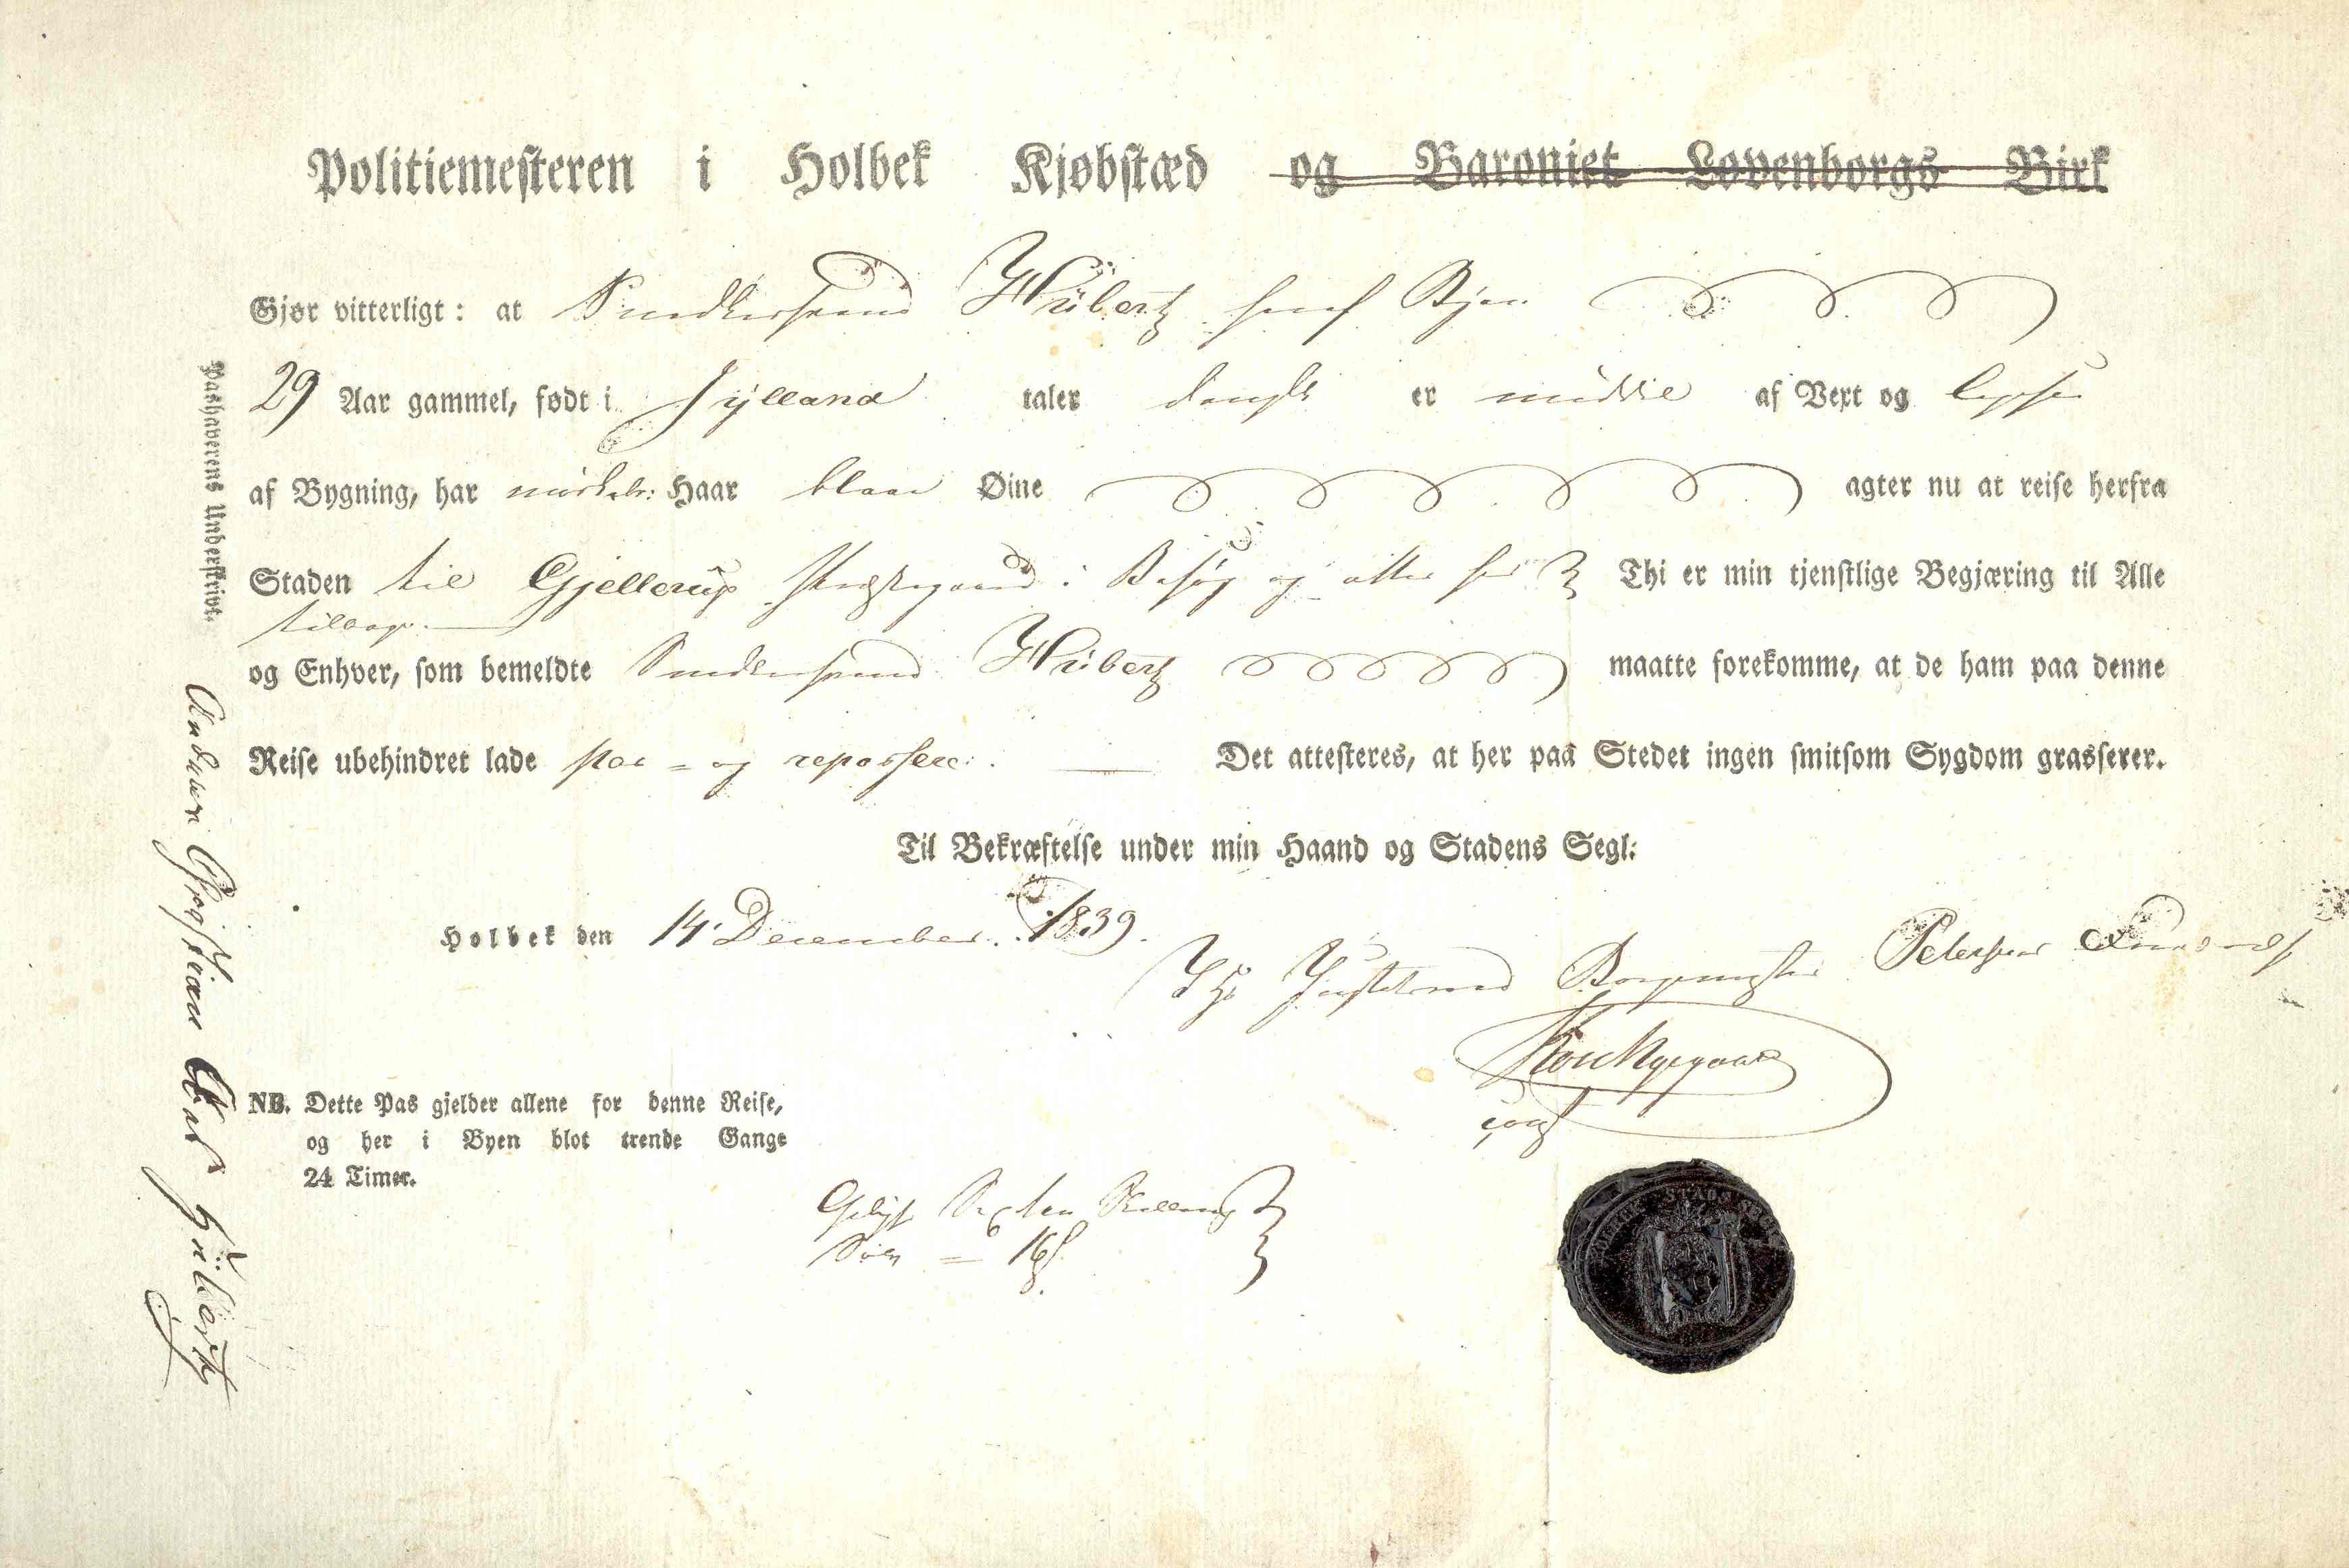 Politiemesteren i Holbek Kjøbstæd og Baroniet Løvenborgs Birk
Gjør vitterligt: at Snedkersvend Hübertz her af Byen
29 Aar gammel, født i Jylland taler dansk er middel af Vext og
af Bygning, har mørkebr: Haar blaae Øine agter nu at reise herfra
Staden til Gjellerup Præstegaard i Besøg og atter her Thi er min tjenstlige Begjæring til Alle
tilbage
og Enhver, som bemeldte Snedkersvend Hübertz maatte forekomme, at de ham paa denne
Reise ubehindret lade pas- og repassere. Det attesteres, at her paa Stedet ingen smitsom Sygdom grasserer.
Til Bekræftelse under min Haand og Stadens Segl:
Holbek den 14 December 1839.
Justitsraad Borgemester Petersens
const
NB. Dette Pas gjelder allene for denne Reise,
og her i Byen blot trende Gange
24 Timer.
Gebyr Sexten Skilling
Sølv = 16 s.
Pashaverens Underskrivt.
Hübertz
STADS SEGL